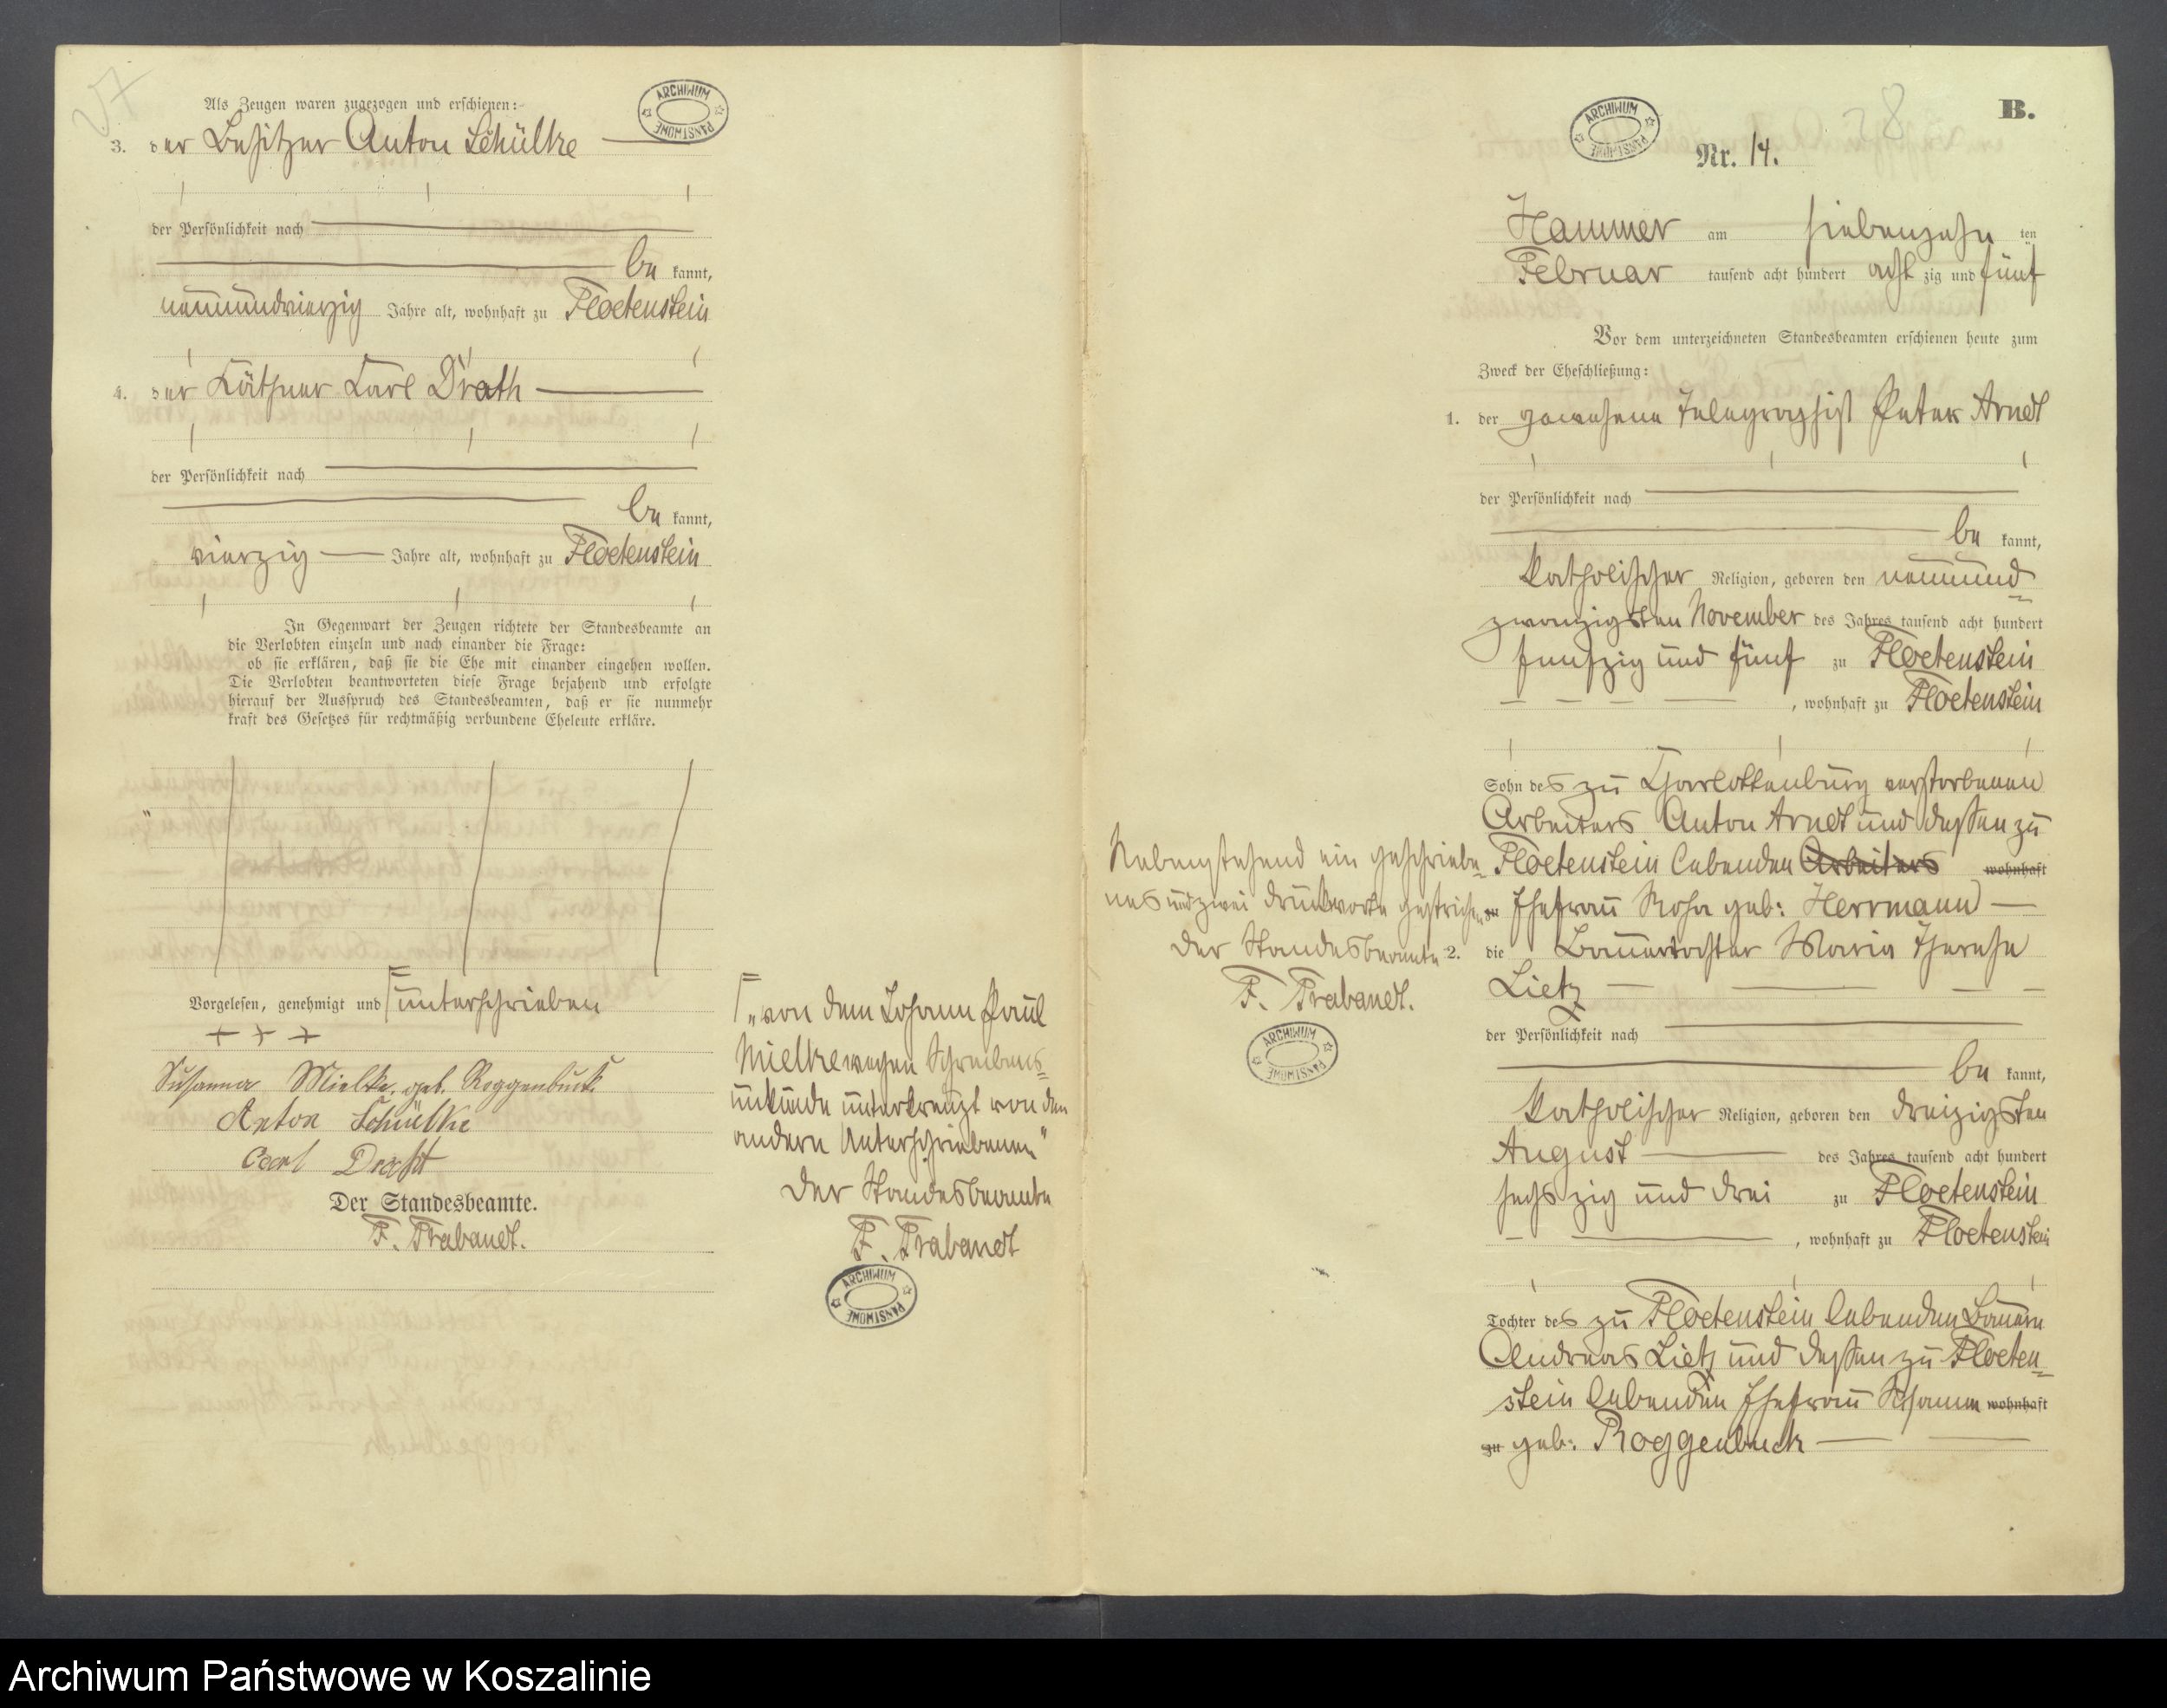 V7
Als Zeugen waren zugezogen und erschienen:
3. der Besitzer Anton Schülke
der Persönlichkeit nach
be kannt,
neunundvierzig Jahre alt, wohnhaft zu Floetenstein
4. der Käthner Carl Drath
der Persönlichkeit nach
be kannt,
vierzig Jahre alt, wohnhaft zu Floetenstein
In Gegenwart der Zeugen richtete der Standesbeamte an
die Verlobten einzeln und nach einander die Frage:
ob sie erklären, daß sie die Ehe mit einander eingehen wollen.
Die Verlobten beantworteten diese Frage bejahend und erfolgte
hierauf der Ausspruch des Standesbeamten, daß er sie nunmehr
kraft des Gesetzes für rechtmäßig verbundene Eheleute erkläre.
Vorgelesen, genehmigt und unterschrieben
+ + +
Susanna Mielke, geb. Roggenbuck
Anton Schülke
Carl Draht
Der Standesbeamte.
F. Trabandt.
„von dem Johann Paul
Mielke wegen Schreibens-
unkunde unterkreuzt von den
andern Unterschriebenen"
Der Standesbeamte
F. Trabandt
ARCHIWUM PAŃSTWOWE
ARCHIWUM PAŃSTWOWE
Nebenstehend ein geschriebe-
nes und zwei Druckworte gestrichen
Der Standesbeamte
F. Trabandt.
ARCHIWUM PAŃSTWOWE
ARCHIWUM PAŃSTWOWE
58
B.
Nr. 14.
Hammer am siebenzehn ten
Februar tausend acht hundert acht zig und fünf
Vor dem unterzeichneten Standesbeamten erschienen heute zum
Zweck der Eheschließung:
1. der gewesene Telegraphist Peter Arndt
der Persönlichkeit nach
be kannt,
katholischer Religion, geboren den neunund-
zwanzigsten November des Jahres tausend acht hundert
funfzig und fünf zu Floetenstein
, wohnhaft zu Floetenstein
Sohn des zu Charlottenburg verstorbenen
Arbeiters Anton Arndt und dessen zu
Floetenstein lebenden Arbeiters wohnhaft
zu Ehefrau Rosa geb: Herrmann
2. die Bauertochter Maria Therese
Lietz
der Persönlichkeit nach
be kannt,
katholischer Religion, geboren den dreizigsten
August des Jahres tausend acht hundert
sechs zig und drei zu Floetenstein
, wohnhaft zu Floetenstein
Tochter des zu Floetenstein lebenden Bauern
Andreas Lietz und dessen zu Floeten-
stein lebenden Ehefrau Susanna wohnhaft
zu geb: Roggenbuck
Archiwum Państwowe w Koszalinie